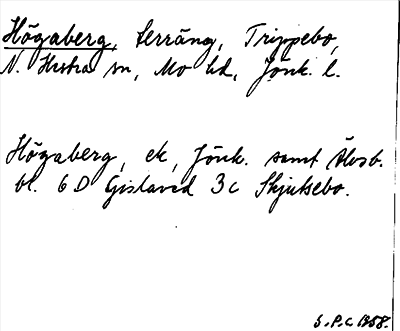 Högaberg, terräng, Trippebo,
N. Hestra sn, Mo hd, Jönk. l.
Högaberg, ek, Jönk. samt Älvsb.
bl. 6 D Gislaved 3c Skjutsebo.
S.P.C. 1958.